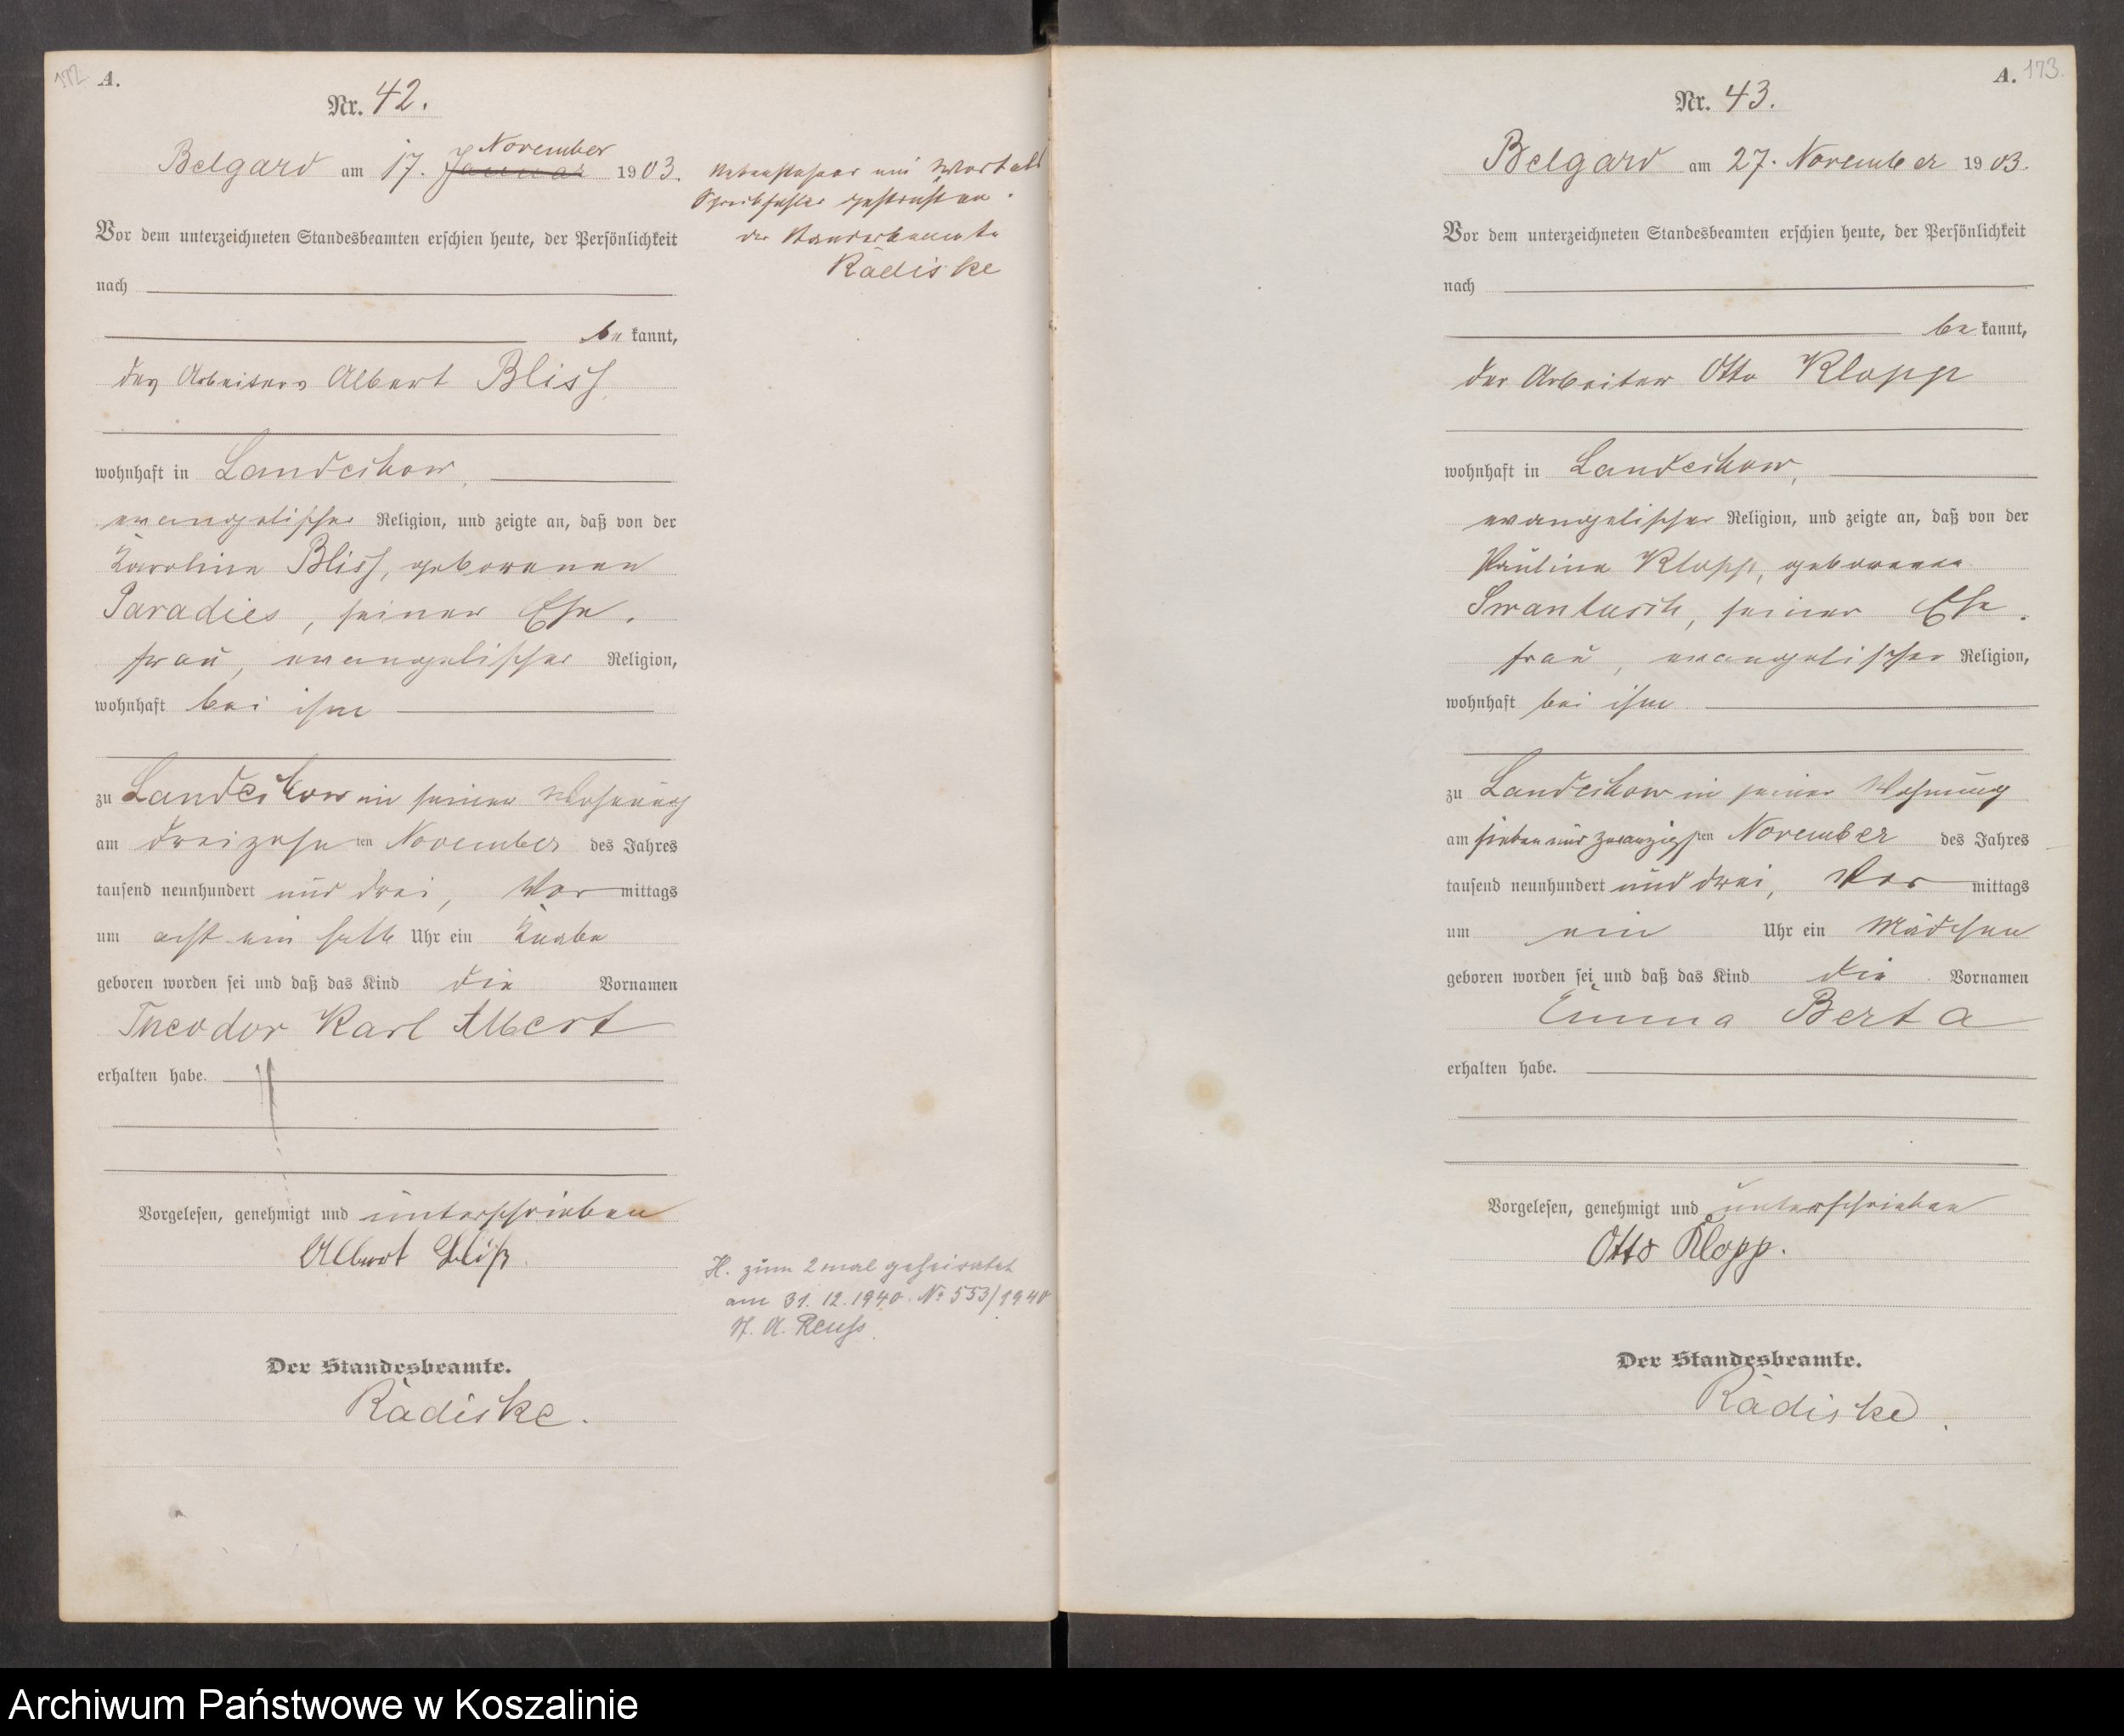 172
A.
Nr. 42.
Belgard am 17. November
Januar 1903.
Nebenstehend ein Wort als
Schreibfehler gestrichen.
der Standesbeamte
Radiske
Vor dem unterzeichneten Standesbeamten erschien heute, der Persönlichkeit
nach
be kannt,
des Arbeiters Albert Bliss
wohnhaft in Landechow,
evangelischer Religion, und zeigte an, daß von der
Karoline Bliss, geborenen
Paradies, seiner Ehe-
frau, evangelischer Religion,
wohnhaft bei ihm
zu Landechow in seiner Wohnung
am dreizehnten November des Jahres
tausend neunhundert und drei, Vor mittags
um acht ein halb Uhr ein Knabe
geboren worden sei und daß das Kind die Vornamen
Theodor Karl Albert
erhalten habe.
Vorgelesen, genehmigt und unterschrieben
Albert Bliß
H. zum 2 mal geheiratet
am 31. 12. 1940. No 553/1940
Der Standesbeamte.
Radiske.
A. 173.
Nr. 43.
Belgard am 27. November 1903.
Vor dem unterzeichneten Standesbeamten erschien heute, der Persönlichkeit
nach
be kannt,
der Arbeiter Otto Klopp
wohnhaft in Landechow,
evangelischer Religion, und zeigte an, daß von der
Pauline Klopp, geborenen
Swantusch, seiner Ehe-
frau, evangelischer Religion,
wohnhaft bei ihm
zu Landechow in seiner Wohnung
am sieben und zwanzigsten November des Jahres
tausend neunhundert und drei, Vor mittags
um ein Uhr ein Mädchen
geboren worden sei und daß das Kind die Vornamen
Emma Berta
erhalten habe.
Vorgelesen, genehmigt und unterschrieben
Otto Klopp.
Der Standesbeamte.
Radiske.
Archiwum Państwowe w Koszalinie